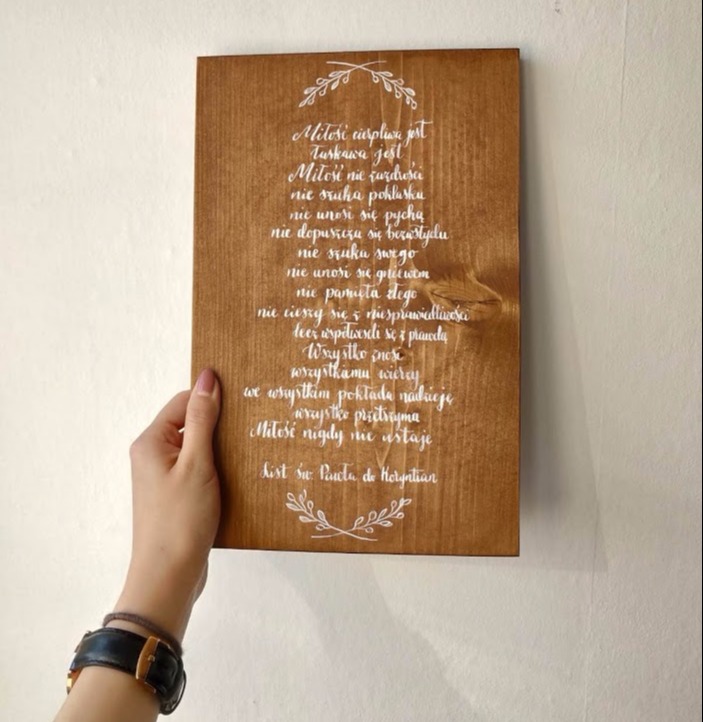 Miłość cierpliwa jest
łaskawa jest
Miłość nie zazdrości
nie szuka poklasku
nie unosi się pychą
nie dopuszcza się bezwstydu
nie szuka swego
nie unosi się gniewem
nie pamięta złego
nie cieszy się z niesprawiedliwości
lecz współweseli się z prawdą
Wszystko znosi
wszystkiemu wierzy
we wszystkim pokłada nadzieję
wszystko przetrzyma
Miłość nigdy nie ustaje
List św. Pawła do Koryntian